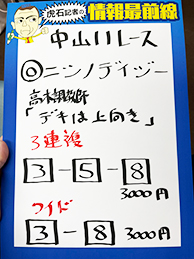 虎石記者の
情報最前線
中山11レース
◎ニシノデイジー
高木調教師
「デキは上向き」
3連複
3-5-8
3000円
ワイド
3-8 3000円